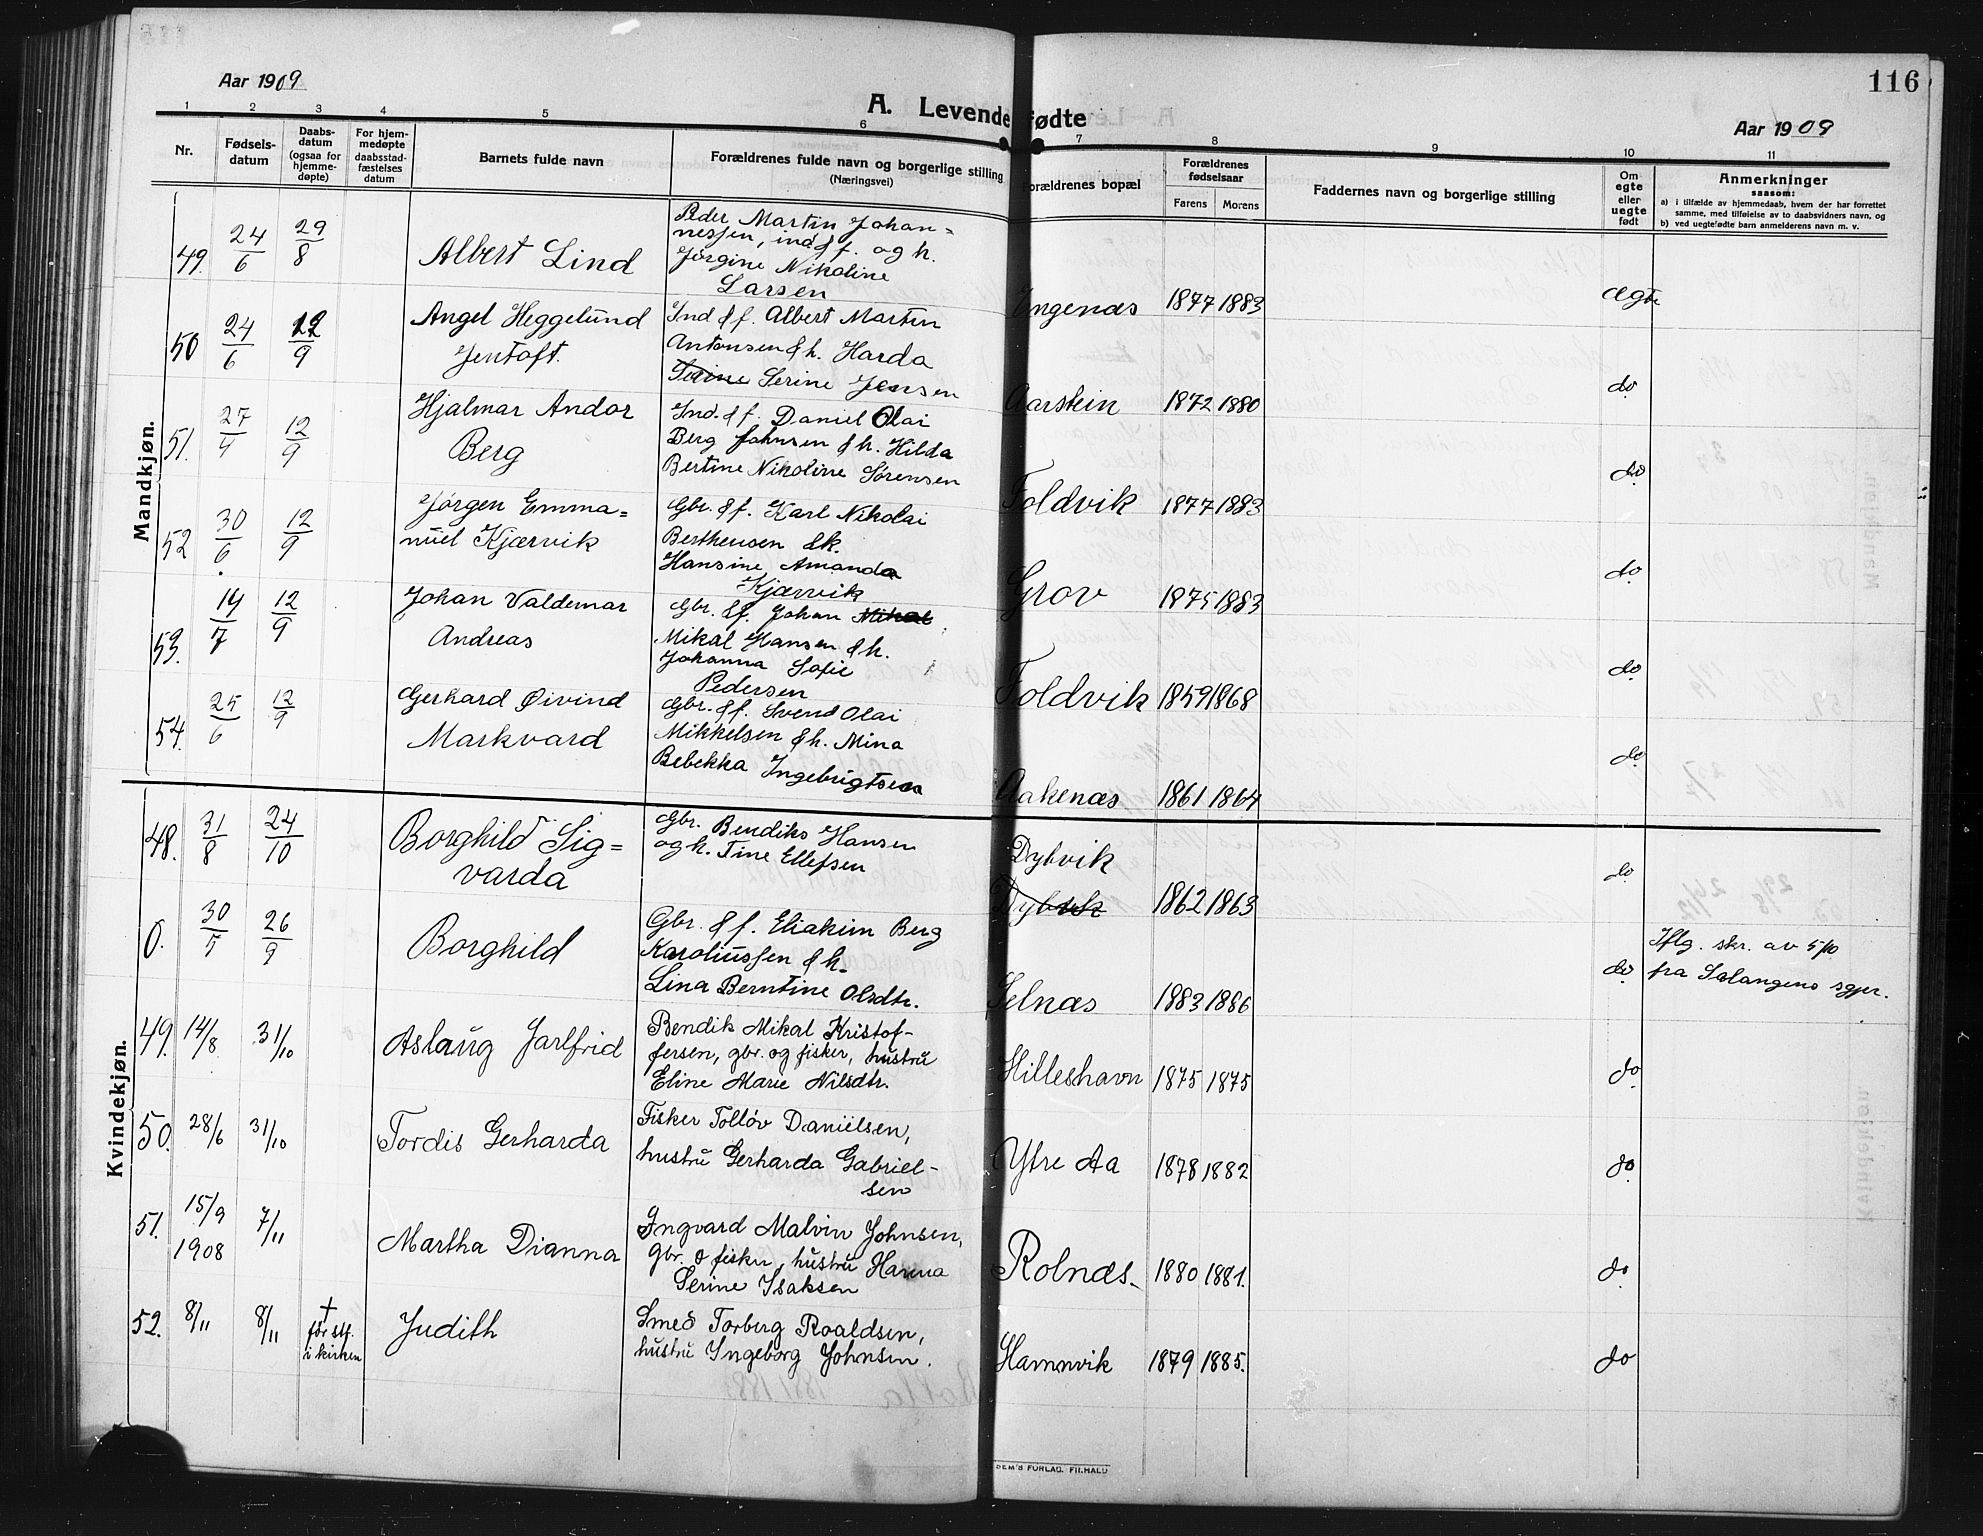 Aar 1909
A. Levendefødte
116
Aar 1909
1 2 3 4 5 6 7 8 9 10 11
Nr.
Fødselsdatum
Daabsdatum (ogsaa for hjemmedøpte)
For hjemmedøpte daabsstadfæstelses datum
Barnets fulde navn
Forældrenes fulde navn og borgerlige stilling (Næringsvei)
Forældrenes bopæl
Forældrenes fødselsaar
Farens Morens
Faddernes navn og borgerlige stilling
Om egte eller uegte født
Anmerkninger
saasom:
a) i tilfælde av hjemmedaab, hvem der har forrettet
samme, med tilføielse av to daabsvidners navn, og
b) ved uegtefødte barn anmelderens navn m. v.
Mandkjøn.
49. 24/6 29/8 Albert Lind
Peder Martin Johan=
nessen, ind & f. og h.
Jørgine Nikoline
Larsen
Engenæs 1877 1883 ægte
50 24/6 12/9 Angel Heggelund
Jentoft.
Ind & f. Albert Martin
Antonsen & h. Harda
Serine Jensen
Aarstein 1872 1880 do
51. 27/4 12/9 Hjalmar Andor
Berg
Ind. & f. Daniel Olai
Berg Johnsen & h. Hilda
Bertine Nikoline Sørensen
Foldvik 1877 1883 do
52 30/6 12/9 Jørgen Emma=
nuel Kjærvik
Gbr. & f. Karl Nikolai
Bertheussen & k.
Hansine Amanda
Kjærvik
Grov 1875 1883 do
53. 14/7 12/9 Johan Valdemar
Andreas
Gbr. & f. Johan Mikal
Mikal Hansen & h.
Johanna Sofie
Pedersen
Foldvik 1859 1868 do
54. 25/6 12/9 Gerhard Øivind
Markvard
Gbr. & f. Svend Olai
Mikkelsen & h. Mina
Bebekka Ingebrigtsen
Aakenæs 1861 1864 do
Kvindekjøn.
48. 31/8 24/10 Borghild Sig=
varda
Gbr. Bendiks Hansen
og h. Tine Ellefsen
Dybvik
Dybvik 1862 1863 do
0. 30/5 26/9 Borghild
Gbr. & f. Eliakim Berg
Karoliussen & h.
Lina Berntine Olsdtr.
Selnæs 1883 1886 do
Iflg. skr. av 5/10
fra Salangens sgpr.
49. 14/8 31/10 Aslaug Jarlfrid
Bendik Mikal Kristof-
fersen, gbr. og fisker, hustru
Eline Marie Nilsdtr.
Hilleshavn 1875 1875 do
50. 28/6 31/10 Tordis Gerharda
Fisker Tolløv Danielsen,
hustru Gerharda Gabriel-
sen
Ytre Aa 1878 1882 do
51. 15/9 1908 7/11 Martha Dianna
Ingvard Malvin Johnsen,
gbr. & fisker, hustru Hanna
Serine Isaksen
Rolnæs 1880 1881. do
52. 8/11 8/11 † før stf. i kirken Judith
Smed Torberg Roaldsen,
hustru Ingeborg Johnsen.
Hamnvik 1879 1885. do
SEM'S FORLAG. FR.HALD